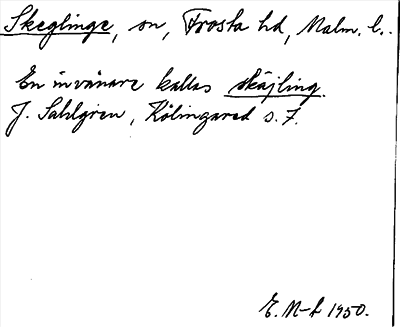 Skeglinge, sn, Frosta hd, Malm. l.
En invånare kallas skäjling.
J. Sahlgren, Kölingared s. 7.
E. M-t 1950.